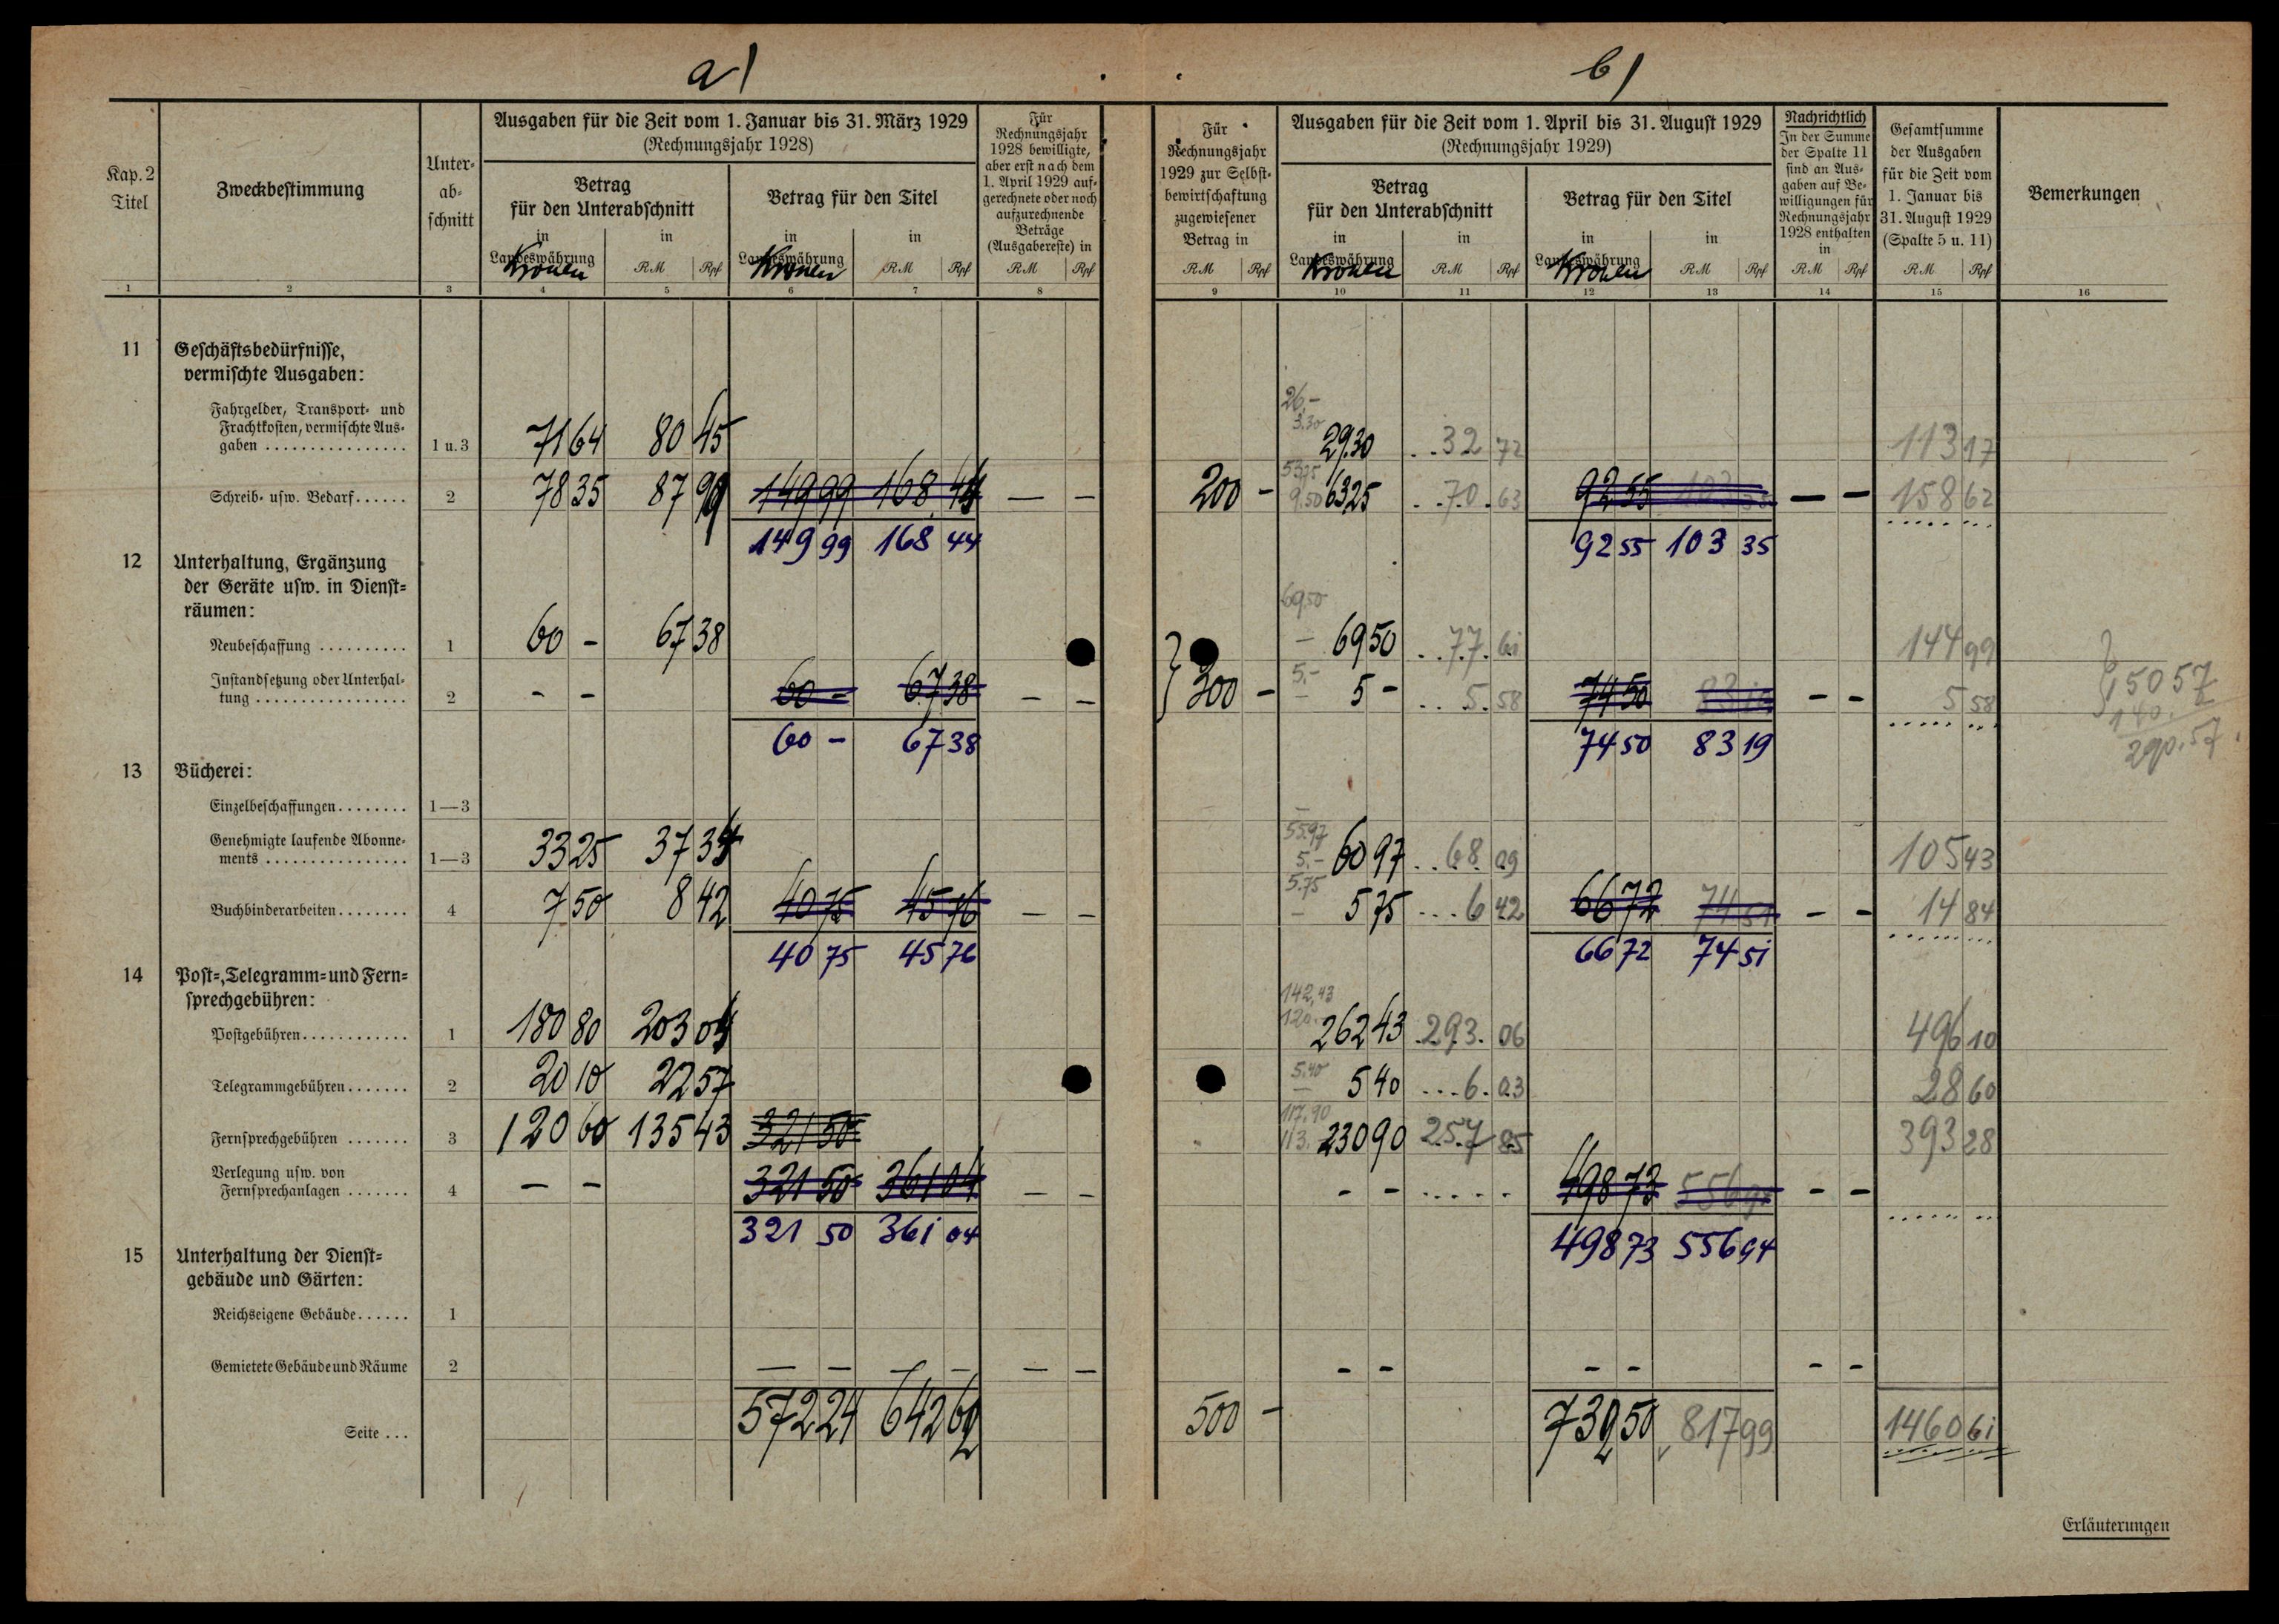 a)
b)
Kap. 2 Titel
Zweckbestimmung
Unter-
ab-
schnitt
Ausgaben für die Zeit vom 1. Januar bis 31. März 1929
(Rechnungsjahr 1928)
Betrag
für den Unterabschnitt
Betrag für den Titel
in Landeswährung Kronen
in RM Rpf
in Landeswährung Kronen
in RM Rpf
Für
Rechnungsjahr
1928 bewilligte,
aber erst nach dem
1. April 1929 auf-
gerechnete oder noch
aufzurechnende
Beträge
(Ausgabereste) in
RM Rpf
Für
Rechnungsjahr
1929 zur Selbst-
bewirtschaftung
zugewiesener
Betrag in
RM Rpf
Ausgaben für die Zeit vom 1. April bis 31. August 1929
(Rechnungsjahr 1929)
Betrag
für den Unterabschnitt
Betrag für den Titel
in Landeswährung Kronen
in RM Rpf
in Landeswährung Kronen
in RM Rpf
Nachrichtlich
In der Summe
der Spalte 11
sind an Aus-
gaben auf Be-
willigungen für
Rechnungsjahr
1928 enthalten
in
RM Rpf
Gesamtsumme
der Ausgaben
für die Zeit vom
1. Januar bis
31. August 1929
(Spalte 5 u. 11)
RM Rpf
Bemerkungen
1 2 3 4 5 6 7 8 9 10 11 12 13 14 15 16
11 Geschäftsbedürfnisse,
vermischte Ausgaben:
Fahrgelder, Transport- und
Frachtkosten, vermischte Aus-
gaben ................ 1 u. 3 71 64 80 45 26,- 3.30 29.30 32 72 113 17
Schreib- usw. Bedarf...... 2 78 35 87 99 149 99 168 44 — — 200 - 53.75 9.50 63 25 70 63 92 55 — — 158 62
149 99 168 44 92 55 103 35
12 Unterhaltung, Ergänzung
der Geräte usw. in Dienst-
räumen:
Neubeschaffung .......... 1 60 - 67 38 69.50 - 69 50 77 61 144 99
Instandsetzung oder Unterhal-
tung ................. 2 - - 60 - 67 38 — — 300 - 5.- - 5 - 5.58 74 50 - - 5 58
150 57
140.
290.57
60 - 67 38 74 50 83 19
13 Bücherei:
Einzelbeschaffungen........ 1—3
Genehmigte laufende Abonne-
ments ................ 1—3 33 25 37 34 55.97 5.- 60 97 68 09 105 43
Buchbinderarbeiten........ 4 7 50 8 42 40 75 45 76 — — 5.75 - 5 75 6 42 66 72 74 51 - - 14 84
40 75 45 76 66 72 74 51
14 Post-, Telegramm- und Fern-
sprechgebühren:
Postgebühren............ 1 180 80 203 04 142,43 120.- 262 43 293.06 496 10
Telegrammgebühren....... 2 20 10 22 57 5.40 - 5 40 6.03 28 60
Fernsprechgebühren ....... 3 120 60 135 43 321 50 117.90 113. 230 90 257 85 393 28
Verlegung usw. von
Fernsprechanlagen ....... 4 — — 321 50 361 04 — — - - 498 73 556 94 - -
321 50 361 04 498 73 556 94
15 Unterhaltung der Dienst-
gebäude und Gärten:
Reichseigene Gebäude...... 1
Gemietete Gebäude und Räume 2 — — — — — — - - - - - -
Seite ... 572 24 642 62 500 - 732 50 817 99 1460 61
Erläuterungen